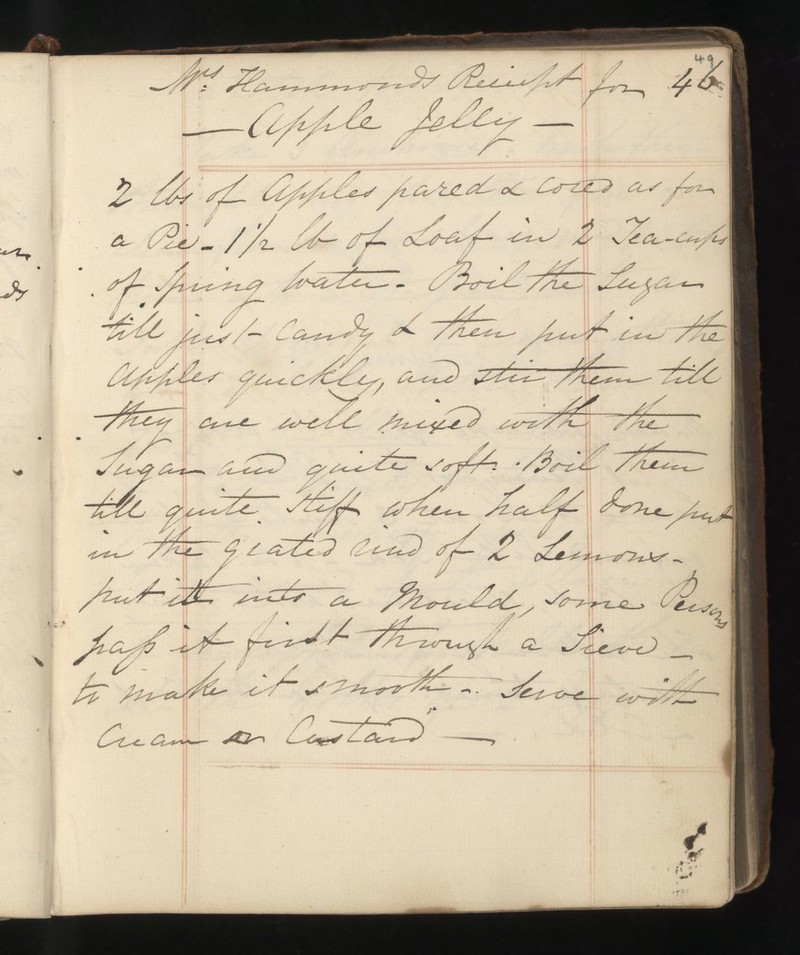 49
Mrs: Hammonds Reciept for 46
— Apple Jelly —
2 lbs of Apples pared & cored as for
a Pie - 1 1/2 lb of Loaf in 2 Tea-cups
of Spring Water - Boil the Sugar
till just candy & then put in the
Apples quickly, and stir them till
they are well mixed with the
Sugar and quite soft. Boil them
till quite stiff when half done put
in the grated rind of 2 Lemons -
put it into a Mould, some Persons
pass it first through a Sieve -
to make it smooth - Serve with
Cream or Custard" —